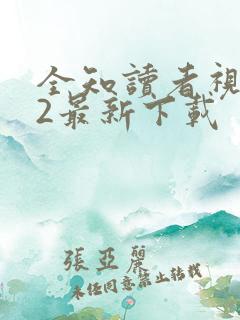 全知讀者視
2最新下載
張亞麗
未任同意禁止轉載